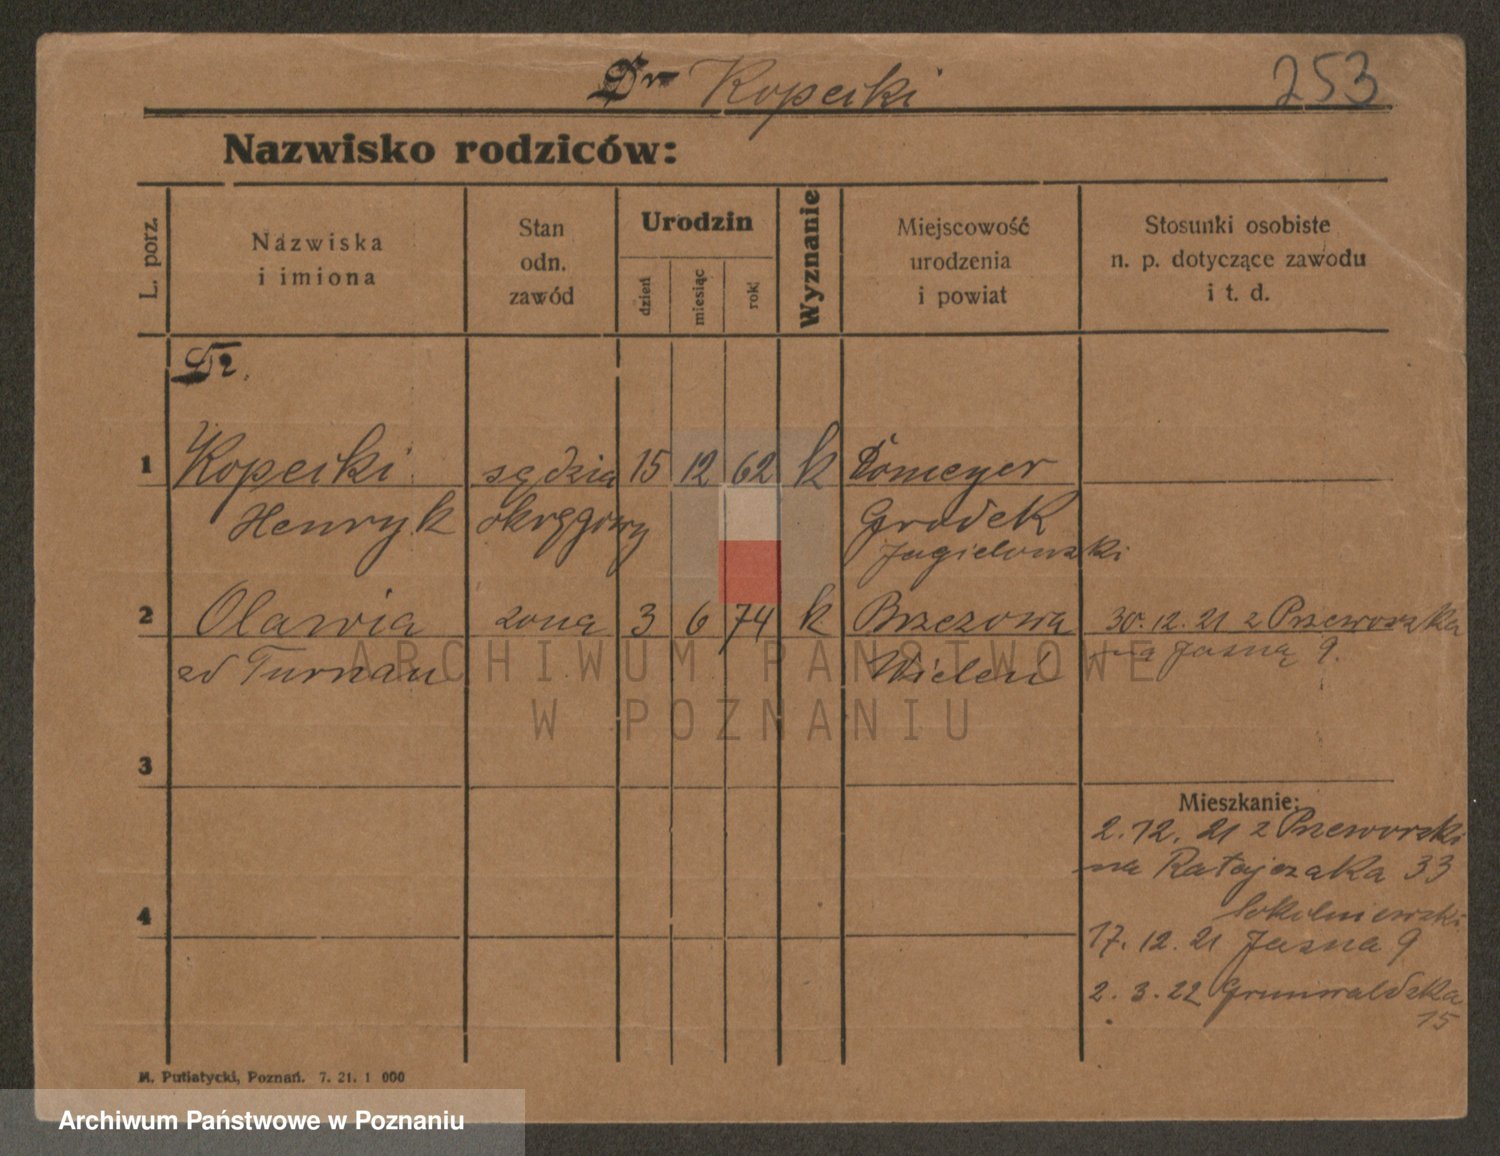 Dr Kopecki 253
Nazwisko rodziców:
L. porz.
Nazwiska
i imiona
Stan
odn.
zawód
Urodzin
dzień
miesiąc
rok
Wyznanie
Miejscowość
urodzenia
i powiat
Stosunki osobiste
n. p. dotyczące zawodu
i t. d.
Dr.
1 Kopecki sędzia 15 12 62 k
Henryk okręgowy Grodek
Jagielonski
2 żona 3 6 74 k Brzezowa 30.12.21 z Przeworska
zd Turnau Wieleń na Jasną 9.
3
Mieszkanie:
2.12.21 z Przeworska
na Ratajczaka 33
4
17.12.21 Jasna 9
2.3.22 Grunwaldzka
15
M. Putiatycki, Poznań. 7. 21. 1 000
ARCHIWUM PAŃSTWOWE
W POZNANIU
Archiwum Państwowe w Poznaniu